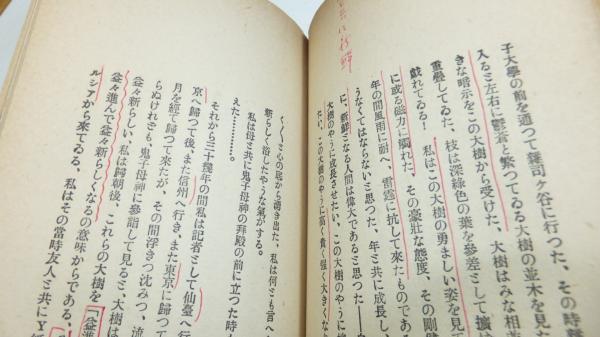 共に新鮮
子大學の前を通つて雜司ヶ谷に行つた、その時
入ると左右に鬱蒼と繁つてゐる大樹の並木を見た
きな暗示をこの大樹から受けた、大樹はみな相
重疊してゐた、枝は深綠色の葉を參差として擴
戲れてゐる！ 私はこの大樹の勇ましい姿を見
に或る磁力に觸れた、その豪壯な態度、その剛
年の間風雨に耐へ、雷霆に抗して來たものであ
うなくてはならないと思つた、年と共に成長し、
に、新鮮になる人間は偉大であると思つた――
大樹のやうに成長させたい、この大樹のやうに
たい、この大樹のやうに高く貴く强く大きくな
と心の底から湧き出た、私は何とも言へ
新らしく浴したやうな氣がする。
私は母と共に鬼子母神の拜殿の前に立つた時
えた………。
それから三十幾年の間私は記者として仙臺へ
京へ歸つて後、また信州へ行き、また東京に歸つ
月を經て歸つて來たが、その間浮きつ沈みつ、流
らぬけれども、鬼子母神に參詣して見ると大樹は
益々新らしい、私は歸朝後、これらの大樹を「益進
益々進んで益々新らしくなるの意味からである、
ルシアから來てゐる、私はその當時友人と共にY